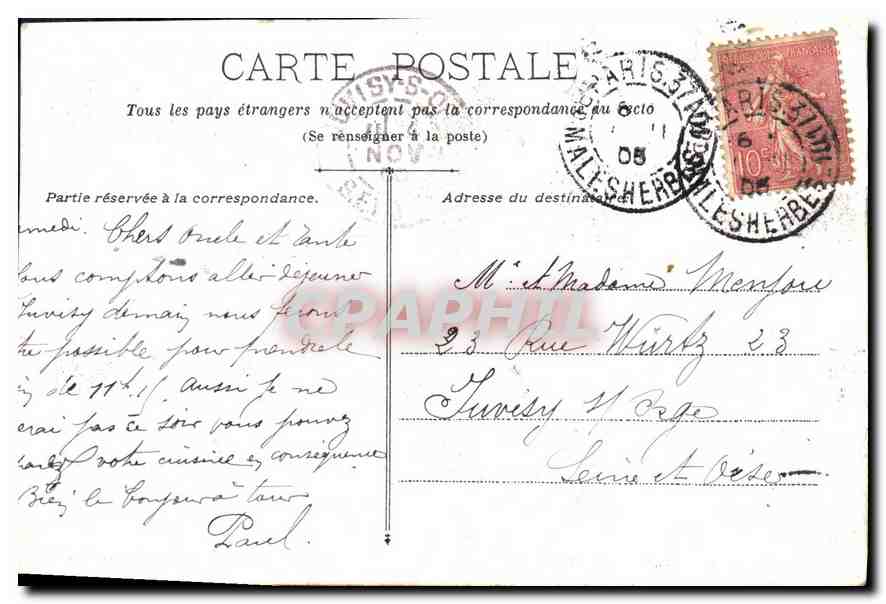 CARTE POSTALE
Tous les pays étrangers n'acceptent pas la correspondance au recto
(Se renseigner à la poste)
Partie réservée à la correspondance.
medi. Chers Oncle et Tante
ous comptons aller déjeuner
Juvisy demain, nous ferons
possible pour prendre le
de 11h.15 aussi je ne
erai pas ce soir vous pouvez
votre cuisine en conséquence
Bien le bonjour à tous
Paul.
Adresse du destinataire
Mr et Madame Menjou
23 Rue Würtz 23
Juvisy s/ Orge
Seine et Oise
PARIS.37
6
05
MALESHERBES
PARIS.37
6
05
MALESHERBES
JUVISY-S-O
NOV
REPUBLIQUE FRANÇAISE
10c
CPAPHIL